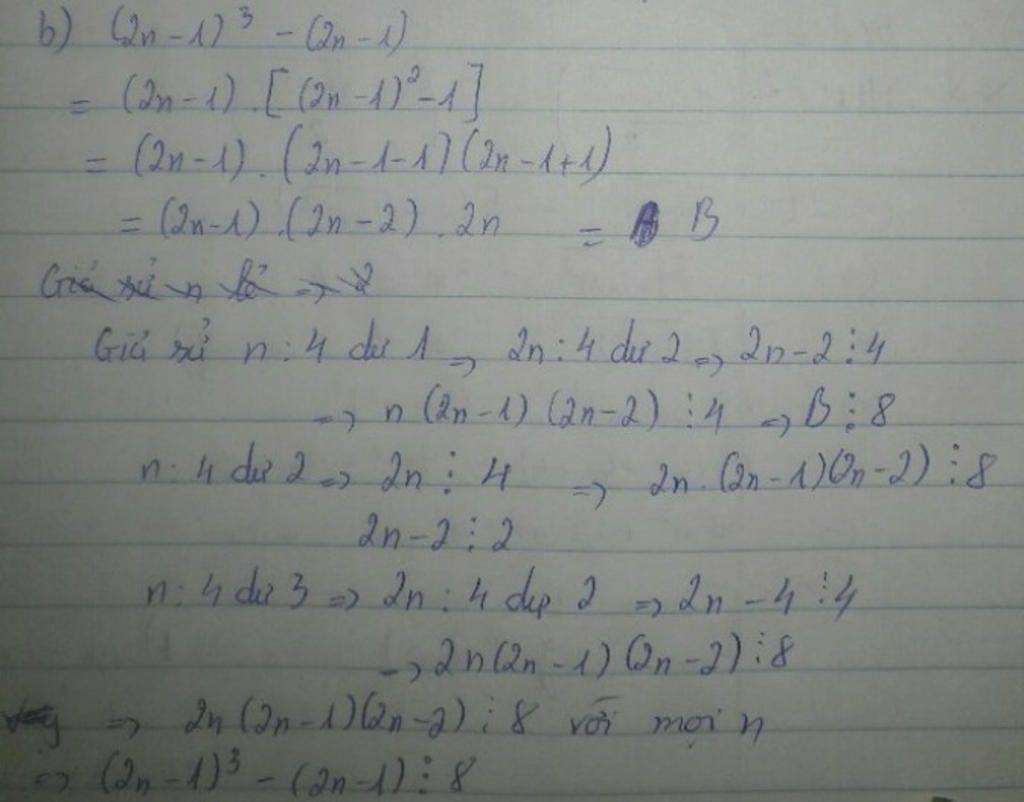 b) (2n-1)³ - (2n-1)
= (2n-1).[(2n-1)²-1]
= (2n-1).(2n-1-1)(2n-1+1)
= (2n-1).(2n-2).2n = B
Giả sử n lẻ => 2
Giả sử n : 4 dư 1 => 2n : 4 dư 2 => 2n-2 ⋮ 4
=> n(2n-1)(2n-2) ⋮ 4 => B ⋮ 8
n : 4 dư 2 => 2n ⋮ 4 => 2n.(2n-1)(2n-2) ⋮ 8
2n-2 ⋮ 2
n : 4 dư 3 => 2n : 4 dư 2 => 2n-4 ⋮ 4
=> 2n(2n-1)(2n-2) ⋮ 8
=> 2n(2n-1)(2n-2) ⋮ 8 với mọi n
=> (2n-1)³ - (2n-1) ⋮ 8